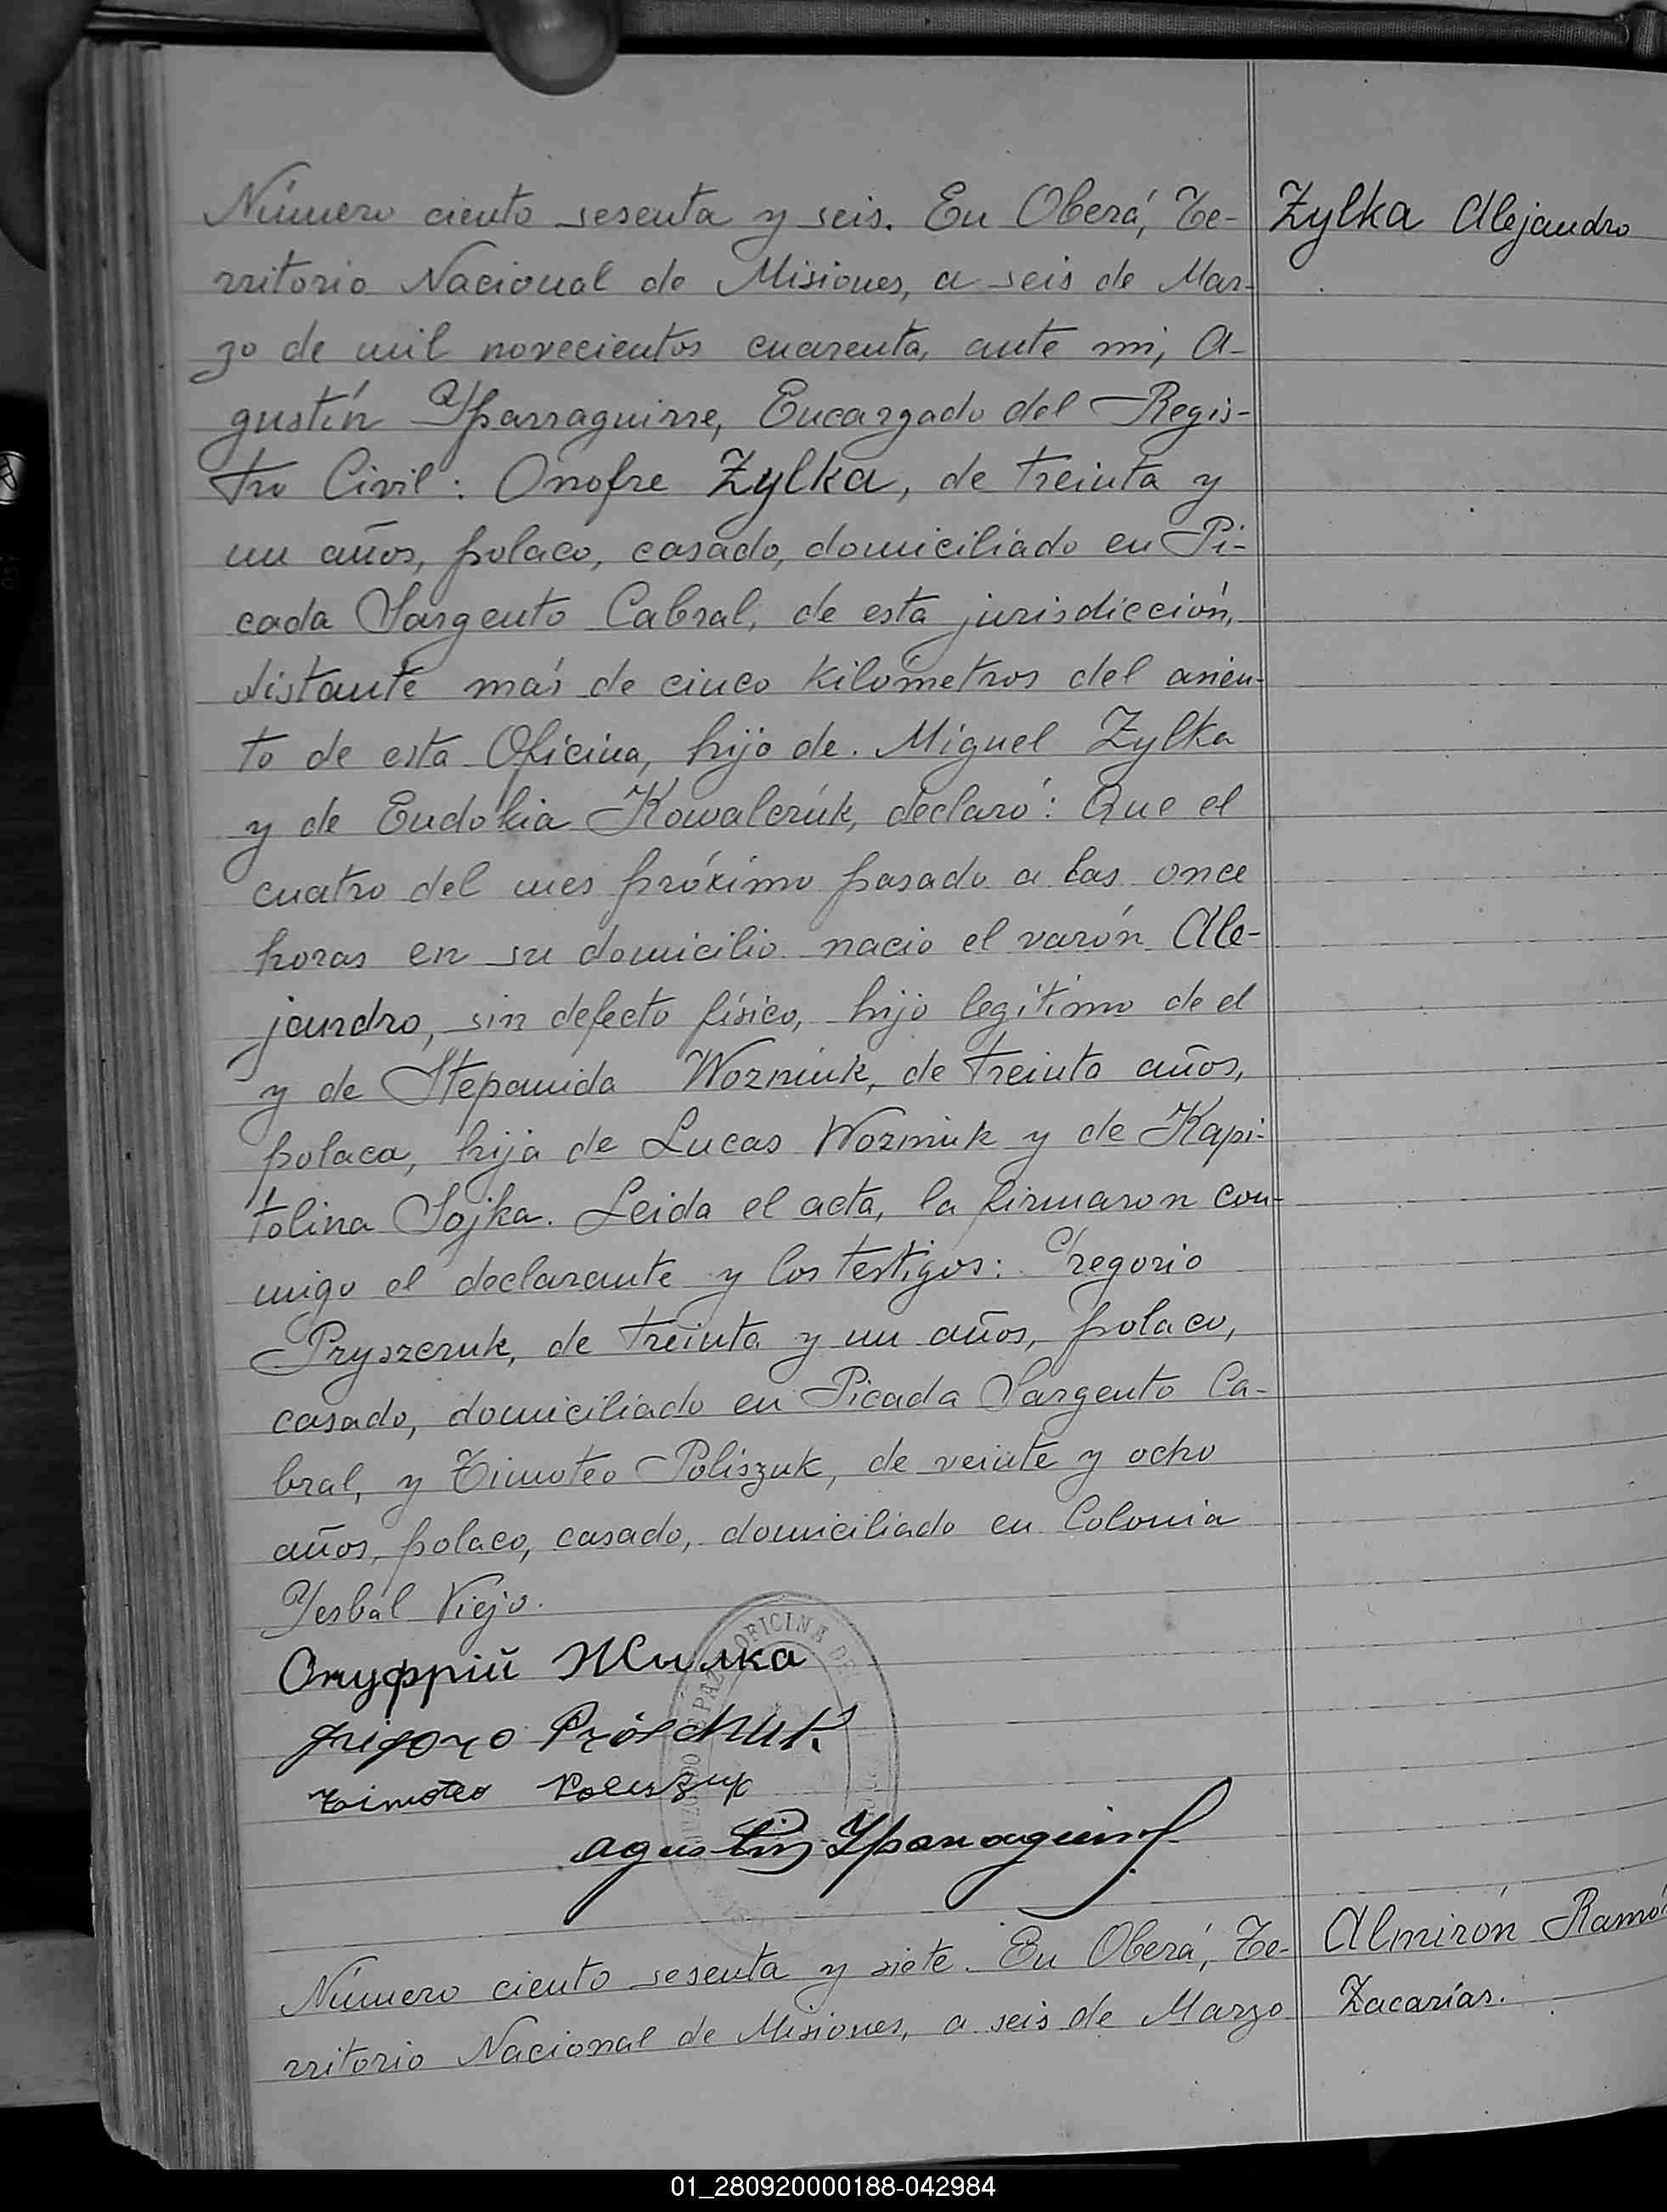 Número ciento sesenta y seis. En Oberá, Te-
Zylka Alejandro
rritorio Nacional de Misiones, a seis de Mar-
zo de mil novecientos cuarenta, ante mi, A-
gustín Yparraguirre, Encargado del Regis-
tro Civil: Onofre Zylka, de treinta y
un años, polaco, casado, domiciliado en Pi-
cada Sargento Cabral, de esta jurisdicción,
distante más de cinco kilómetros del asien-
to de esta Oficina, hijo de Miguel Zylka
y de Eudokia Kowalczúk, declaró: Que el
cuatro del mes próximo pasado a las once
horas en su domicilio nacio el varón Ale-
jandro, sin defecto físico, hijo legítimo de el
y de Stepanida Wozniuk, de treinta años,
polaca, hija de Lucas Wozniuk y de Kapi-
tolina Sojka. Leida el acta, la firmaron con-
migo el declarante y los testigos: Gregorio
Pryszczuk, de treinta y un años, polaco,
casado, domiciliado en Picada Sargento Ca-
bral, y Timoteo Poliszuk, de veinte y ocho
años, polaco, casado, domiciliado en Colonia
Yerbal Viejo.
Онуфрій Жилка
OFICINA DE
PAZ
Timoteo Poliszuk
Agustín Yparraguirre
Número ciento sesenta y siete. En Oberá, Te-
Almirón Ramó
rritorio Nacional de Misiones, a seis de Marzo
Zacarías.
01_280920000188-042984